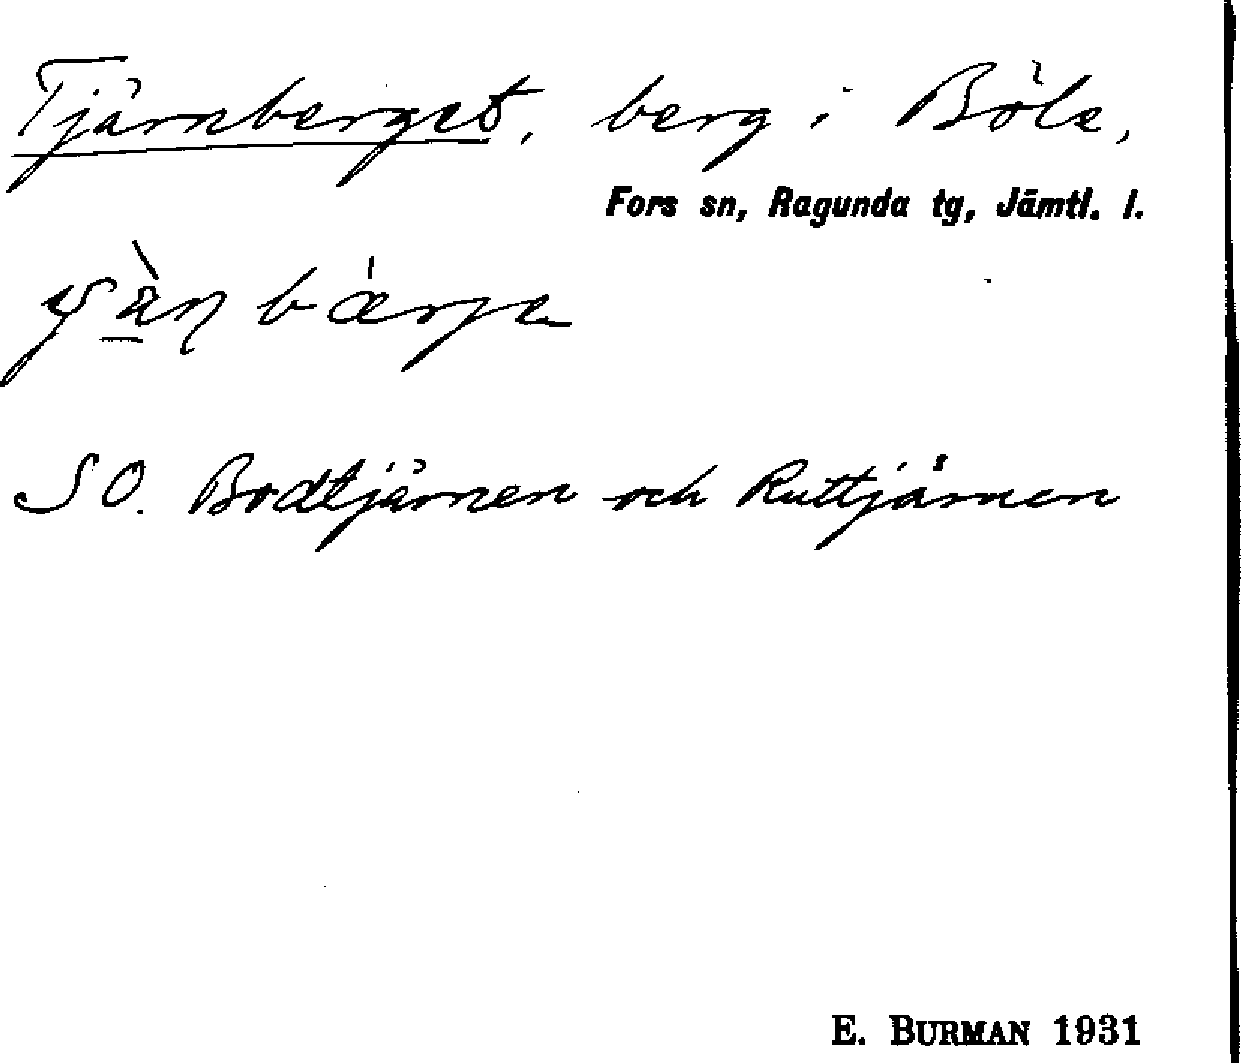 Tjärnberget, berg i Böle,
Fors sn, Ragunda tg, Jämtl. l.
SO. Bodtjärnen och Ruttjärnen
E. BURMAN 1931